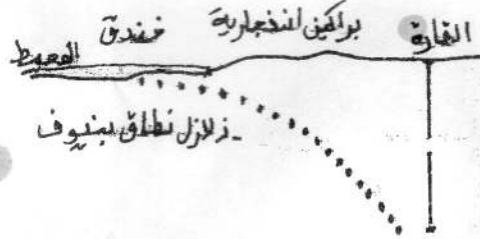 القارة
براكين انفجارية
خندق
المحيط
- زلازل نطاق بنيوف